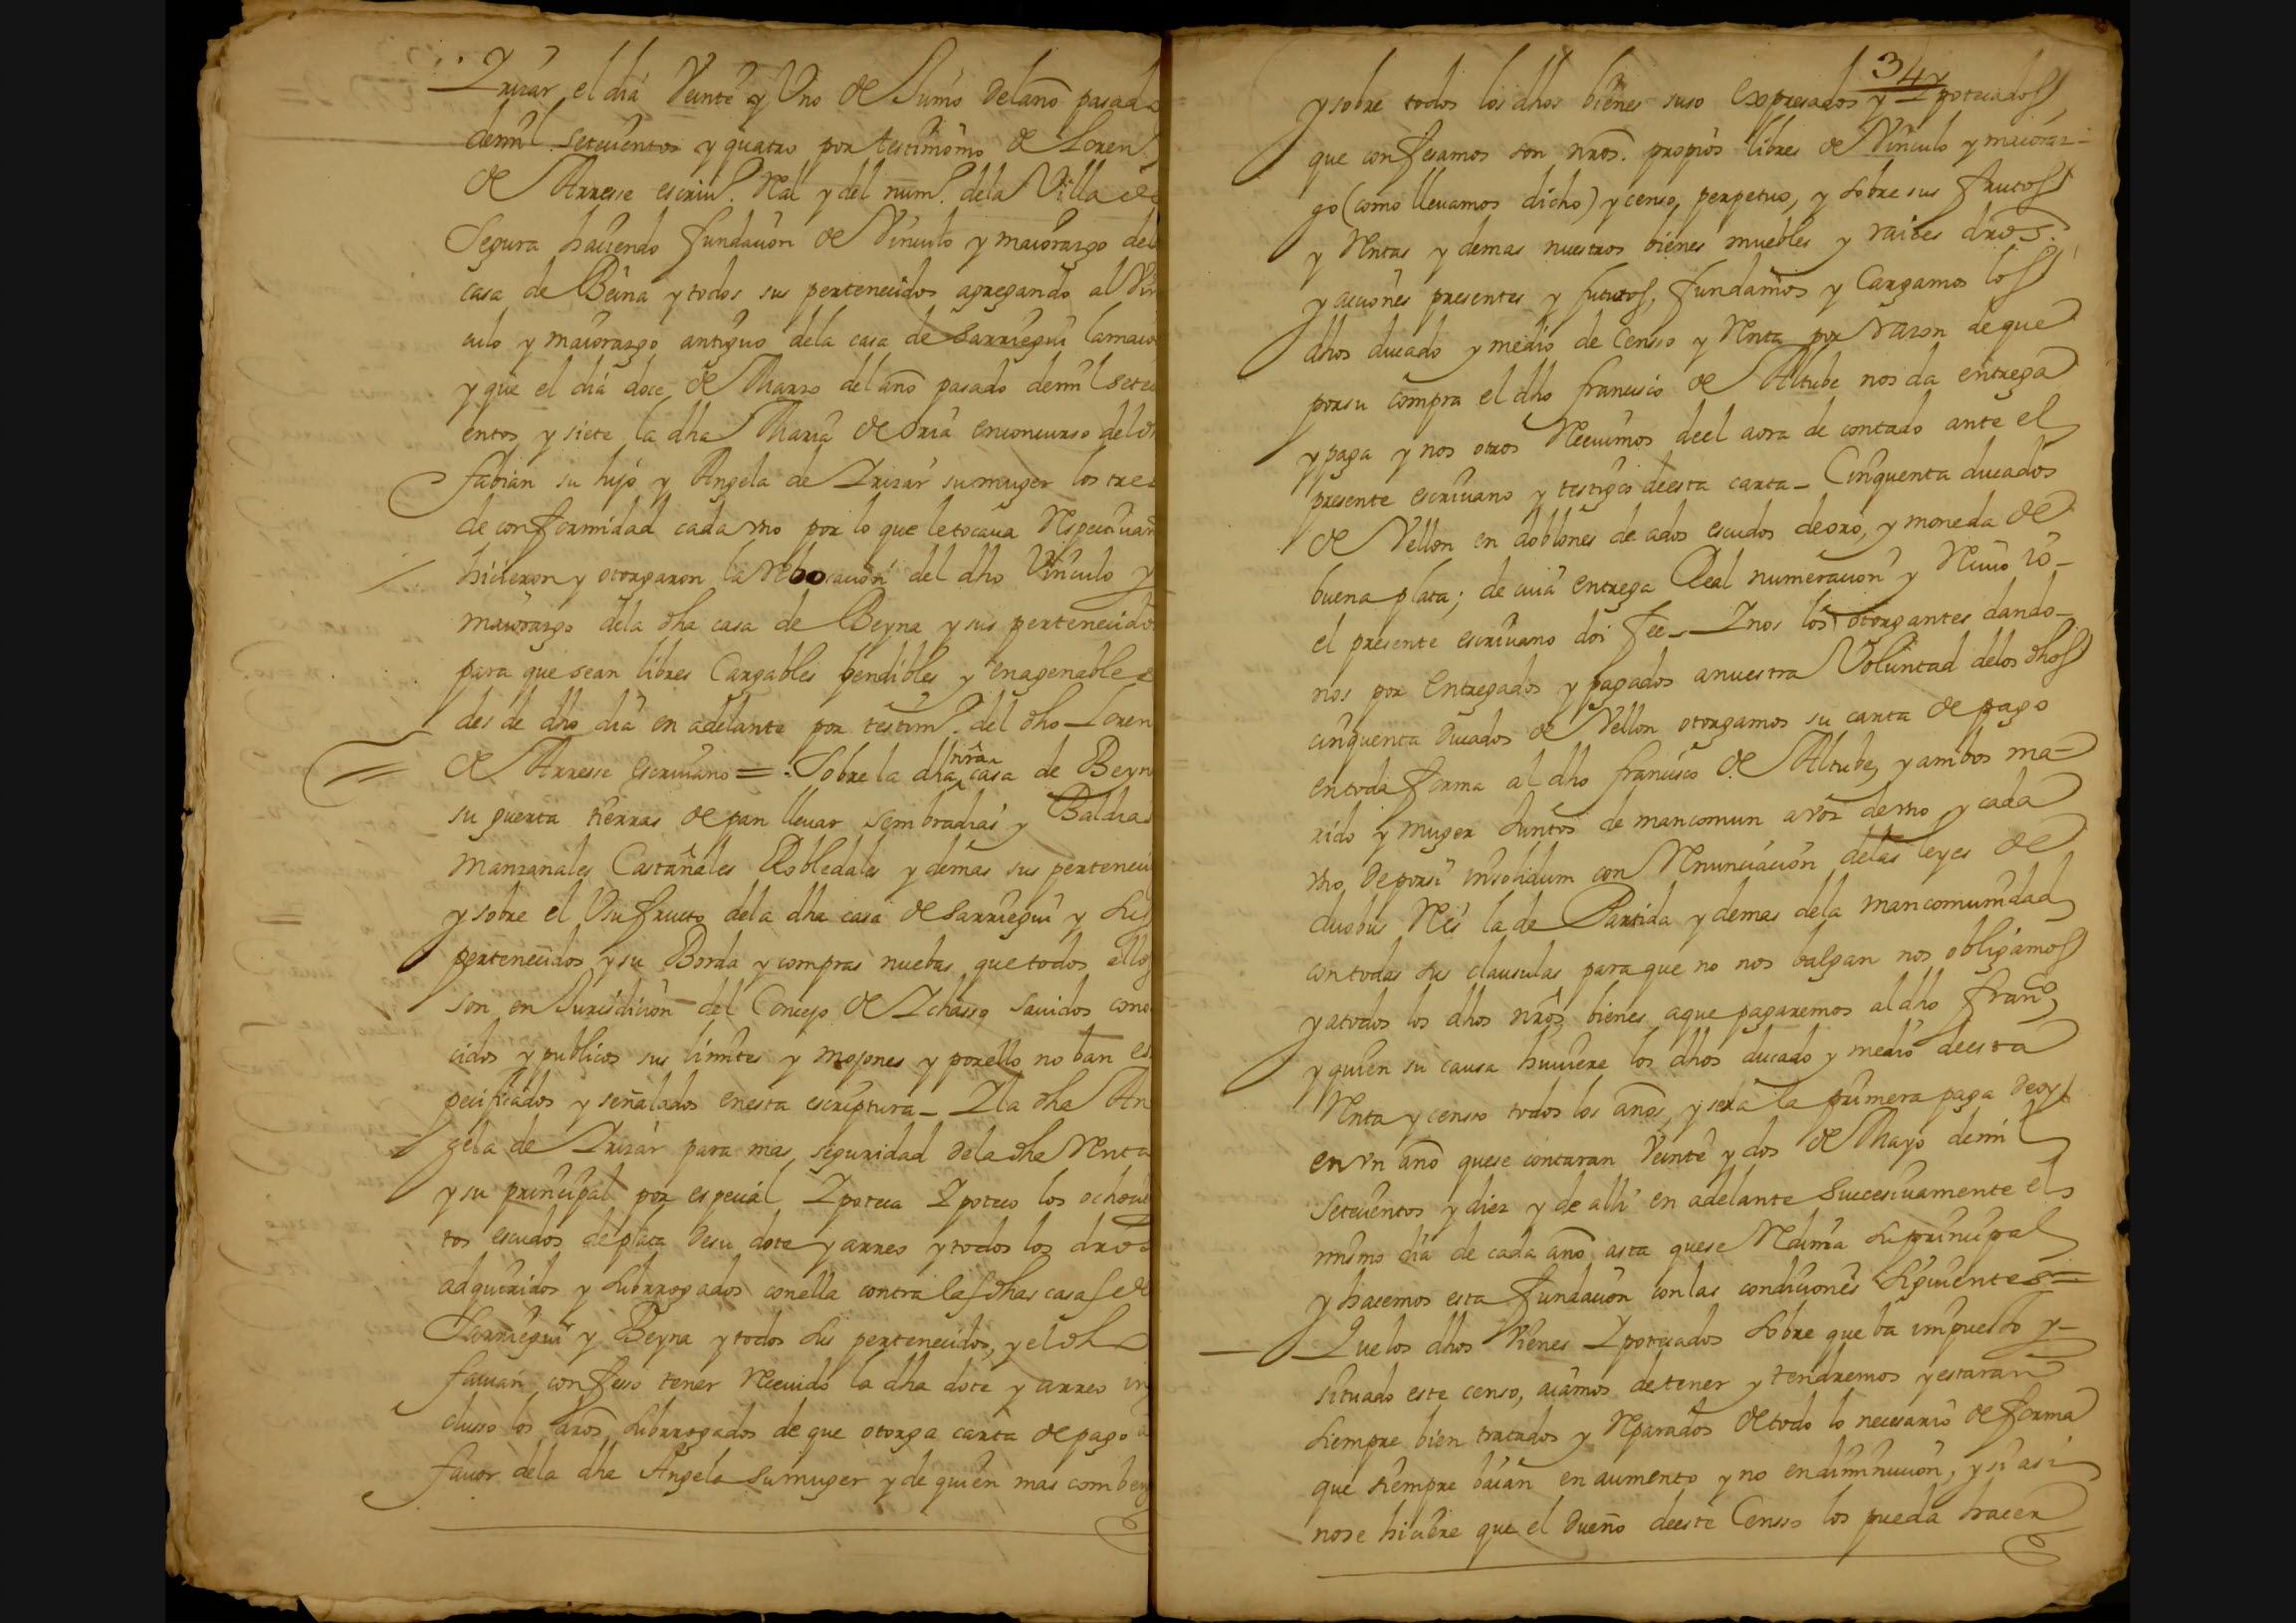 Yrizar el dia Veinte y Uno de Junio del año pasad
demil setecientos y quatro por testimonio de Loren
de Arresse escriu.º Real y del num.º dela Villa de
Segura haciendo fundacion de Vinculo y maiorazgo del
casa de Beina y todos sus pertenecidos agregando al Vin
culo y maiorazgo antiguo dela casa de Sarriegui lamaio
y que el dia doce de Marzo del año pasado demil sete
entos y siete la dha Maria de Oria enconcurso delos
fabian su hijo y Angela de Yrizar sumuger los tre
de conformidad cada vno por lo que letocaua Respectiuam
hicieron y otorgaron la rebocacion del dho Vinculo y
maiorazgo dela dha casa de Beyna y sus pertenecido
para que sean libres Cargables bendibles y enagenables
des de dho dia en adelante por testim.º del dho Loren
de Arresse escriuano = Sobre la dha nra casa de Beyn
su guerta tierras de pan lleuar sembradias y Baldias
manzanales Castañales Robledales y demas sus perteneci
y sobre el Vsufructo dela dha casa de Sarriegui y sus
pertenecidos y su Borda y compras nuebas que todos ellos
son en Jurisdicion del Concejo de Ychasso sauidos cono
cidos y publicos sus limites y mojones y porello no ban es
pecificados y señalados enesta escriptura_ Y la dha An
gela de Yrizar para mas seguridad dela dha Renta
y su principal por especial Ypoteca Ypoteco los ochocien
tos escudos de plata desu dote y arreo y todos los dros
adqueridos y subrrogados conella contra las dhas casas de
Sarriegui y Beyna y todos sus pertenecidos, y el dho
fauian confesso tener Receuido la dha dote y arreo in
clusso los dros subrrogados de que otorga carta de pago a
fauor dela dha Angela sumuger y de quien mas combeng
34
y sobre todos los dhos bienes suso Expresados y Ypotecados
que confesamos son nros. propios libres de Vinculo y maioraz-
go (como lleuamos dicho) y censo, perpetuo, y sobre sus frutos
y Rentas y demas nuestros bienes muebles y raices dros.
y acciones presentes y futuros, fundamos y Cargamos los
dhos ducado y medio de Censso y Renta por razon de que
porsu compra el dho francisco de Altube nos da entrega
y paga y nos otros Receuimos deel aora de contado ante el
presente escriuano y testigos deesta carta_ Cinquenta ducados
de Vellon en doblones de ados escudos deoro, y moneda de
buena plata; de cuia entrega Real numeracion y Reciuo io_
el presente escriuano doi fee_ Y nos los otorgantes dando_
nos por Entregados y pagados anuestra Voluntad delos dhos
cinquenta ducados de Vellon otorgamos su carta de pago
entoda forma al dho francisco de Altube, y ambos ma_
rido y muger Juntos de mancomun avoz devno y cada
vno, deporsi insolidum con Renunciacion delas leyes de
duobus Res la de Partida y demas dela mancomunidad
contodas sus clausulas para que no nos balgan nos obligamos
y atodos los dhos nros bienes aque pagaremos aldho franco
y quien su causa huuiere los dhos ducado y medio deesta
Renta y censso todos los años, y sera la primera paga deoy
en vn año quese contaran Veinte y dos de Mayo demil
Setecientos y diez y de alli en adelante Succesiuamente el
mismo dia de cada año asta quese Redima suprincipal
y hacemos esta fundacion conlas condiciones Siguientes=
Que los dhos Vienes Ypotecados sobre que ba impuesto y_
situado este censo, aiamos detener y tendremos y estaran
siempre bien tratados y Reparados de todo lo necesario de forma
que siempre baian en aumento y no endiminucion, y si asi
nose hiciere que el dueño deeste Censso los pueda hacer